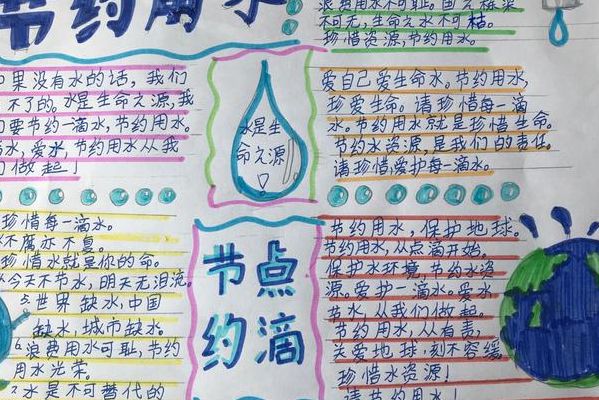 节约用水!
浪费用水不可耻。
不可无,生命之水不可枯。
珍惜资源,节约用水。
果没有水的话,我们
不了的。水是生命之源,我
要节约一滴水,节约用水。
水,爱水,节约用水从我
做起!
水是生
命之源
爱自己爱生命水。节约用水,
珍爱生命。请珍惜每一滴
水。节约用水就是珍惜生命。
节约水资源,是我们的责任。
请珍惜,爱护每一滴水。
珍惜每一滴水。
不腐亦不息。
珍惜水就是你的命。
今天不节水,明天无泪流。
5.世界缺水,中国
缺水,城市缺水。
6.浪费用水可耻,节约
用水光荣。
7.水是不可替代的
节点
约滴
节约用水,保护地球。
节约用水,从点滴开始。
保护水环境,节约水资
源。爱护一滴水。爱水
节水,从我们做起。
节约用水,从有责,
关爱地球,刻不容缓,
珍惜水资源!
请节约用水!